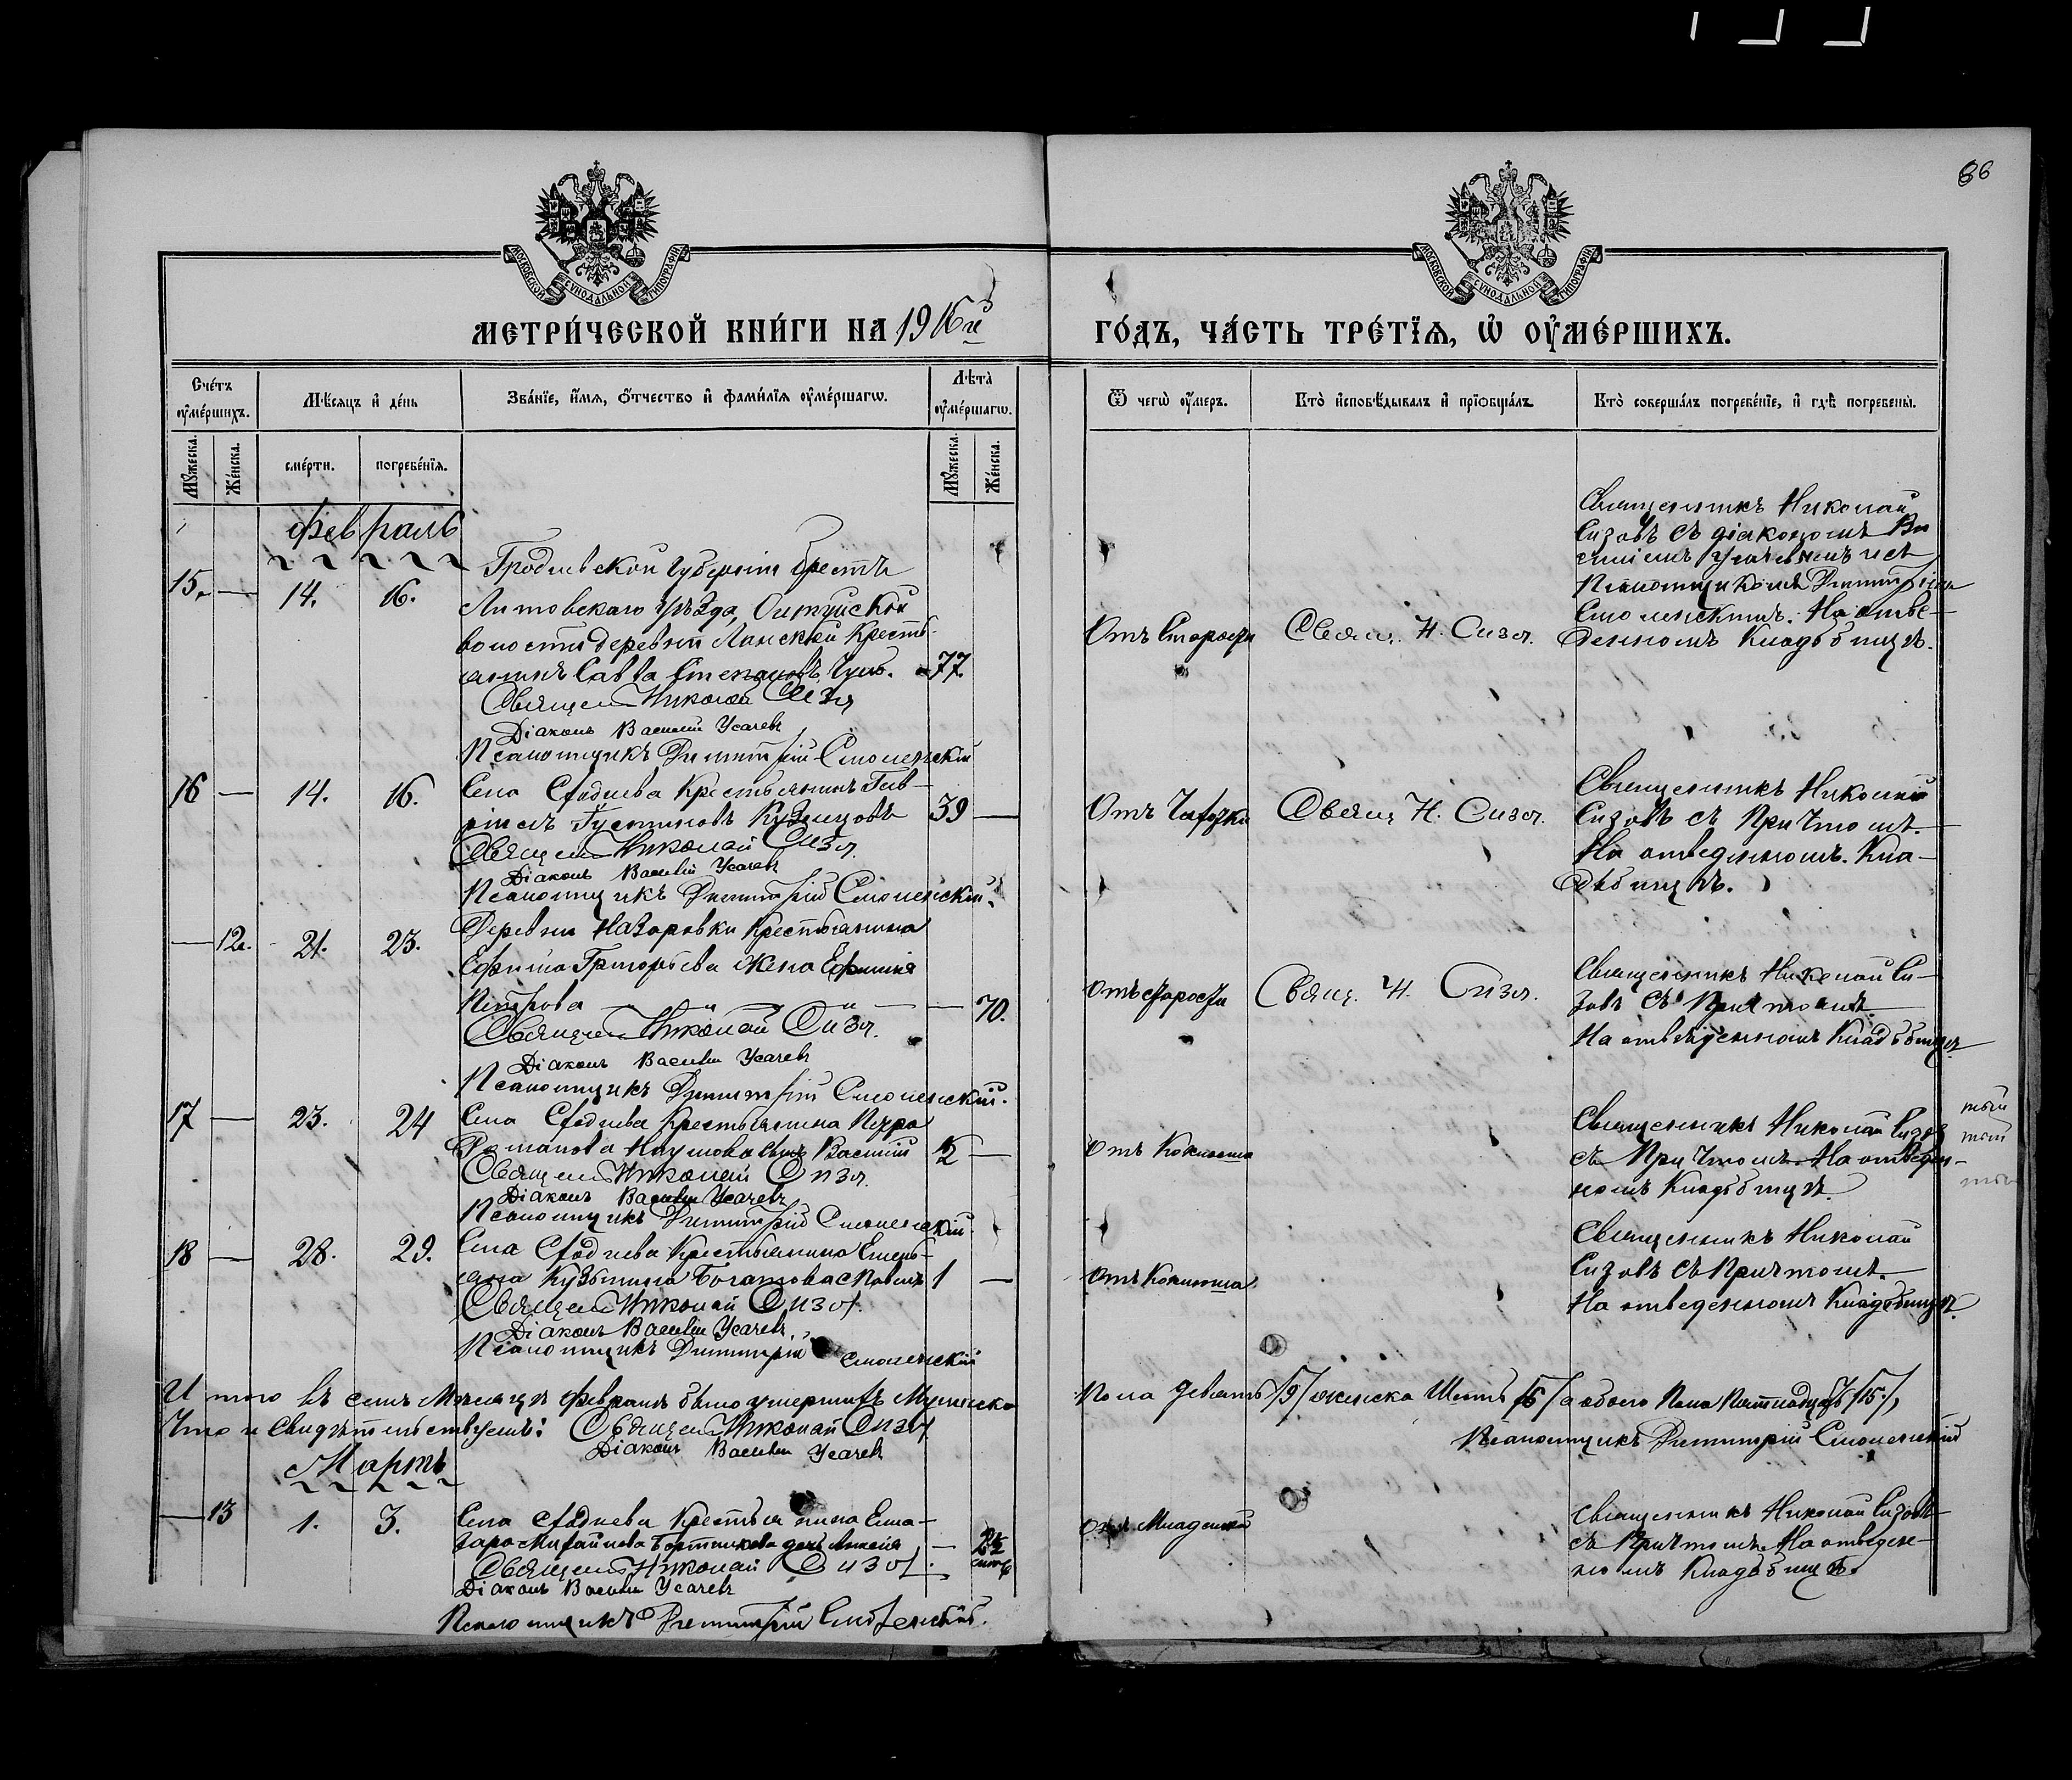 86
МОСКОВСКОЙ СѴНОДАЛЬНОЙ ТИПОГРАФІИ
МОСКОВСКОЙ СѴНОДАЛЬНОЙ ТИПОГРАФІИ
МЕТРИ́ЧЕСКОЙ КНИ́ГИ НА 1916й
ГО́ДЪ, ЧА́СТЬ ТРЕ́ТЇѦ, Ѡ҆ ОУ҆МЕ́РШИХЪ.
Сче́тъ оу҆ме́ршихъ.
Мѣ́сѧцъ и҆ де́нь
Зва́нїе, и҆́мѧ, ѻ҆́тчество и҆ фами́лїѧ оу҆ме́ршагѡ.
Лѣ̑та оу҆ме́ршагѡ.
Ѿ чегѡ̀ оу҆́меръ.
Кто̀ и҆сповѣ́дывалъ и҆ прїѻбща́лъ.
Кто̀ соверша́лъ погребе́нїе, и҆ гдѣ̀ погребены̀.
Мꙋ́жеска.
Же́нска.
сме́рти.
погребе́нїѧ.
Мꙋ́жеска.
Же́нска.
Февраль
15. — 14. 16.
Гродненской губерніи Брестъ
Литовскаго уѣзда,
волости деревни Кресть-
янинъ Савва Степановъ 77.
Священ Николай Сизов
Діаконъ Василій Усачевъ
Псаломщикъ Димитрій Смоленскій
Отъ Старости
Свящ. Н. Сизов.
Священникъ Николай
Сизовъ съ діакономъ Ва
силіемъ Усачевымъ и съ
Псаломщикомъ Димитріем
Смоленскимъ. На отве-
денномъ Кладбищѣ.
16 — 14. 16.
Села Крестьянинъ Гав-
ріилъ Кузнецовъ 39 —
Священ Николай Сизов.
Діаконъ Василій Усачевъ
Псаломщикъ Димитрій Смоленскій.
Отъ Чахотки
Свящ Н. Сизов.
Священникъ Николай
Сизовъ съ Причтомъ.
На отведенномъ Кла-
дбищѣ.
— 12. 21. 23.
Деревни Назаровки Крестьянина
Ефима Григорьева жена Ефимія
Петрова — " — " — — 70.
Священ Николай Сизов.
Діаконъ Василій Усачевъ
Псаломщикъ Димитрій Смоленскій.
Отъ старости
Свящ. Н. Сизов.
Священникъ Николай Си-
зовъ съ Причтомъ.
На отведенномъ Кладбищѣ
17 — 23. 24
Села Крестьянина Петра
Романова Наумова сынъ Василій 1/2 —
Священ Николай Сизов.
Діаконъ Василій Усачевъ
Псаломщикъ Димитрій Смоленскій.
Отъ Коклюша
Священникъ Николай Сизов
съ Причтомъ. На отведен-
номъ Кладбищѣ.
18 — 28. 29.
Села Крестьянина Емель-
яна Кузьмина Богатова с Павелъ 1 —
Священ Николай Сизов.
Діаконъ Василій Усачевъ.
Псаломщикъ Димитрій Смоленскій
Отъ Коклюша
Священникъ Николай
Сизовъ съ Причтомъ.
На отведенномъ Кладбищѣ.
Итого въ семъ Мѣсяцѣ Февралѣ было умершихъ Мужеска
Пола Девять /9/ женска Шесть /6/ а обоего Пола Пятнадцать /15/,
Что и Свидѣтельствуемъ: Священ Николай Сизов
Діаконъ Василій Усачевъ
Псаломщикъ Димитрій Смоленскій
Мартъ
— 13 1. 3.
Села Крестьянина Ела-
зара дочь — 2 1/2
Священ Николай Сизов.
Діаконъ Василій Усачевъ
Псаломщикъ Димитрій Смоленскій.
Отъ Младенч
Священникъ Николай Сизовъ
съ Причтомъ. На отведен-
номъ Кладбищѣ.